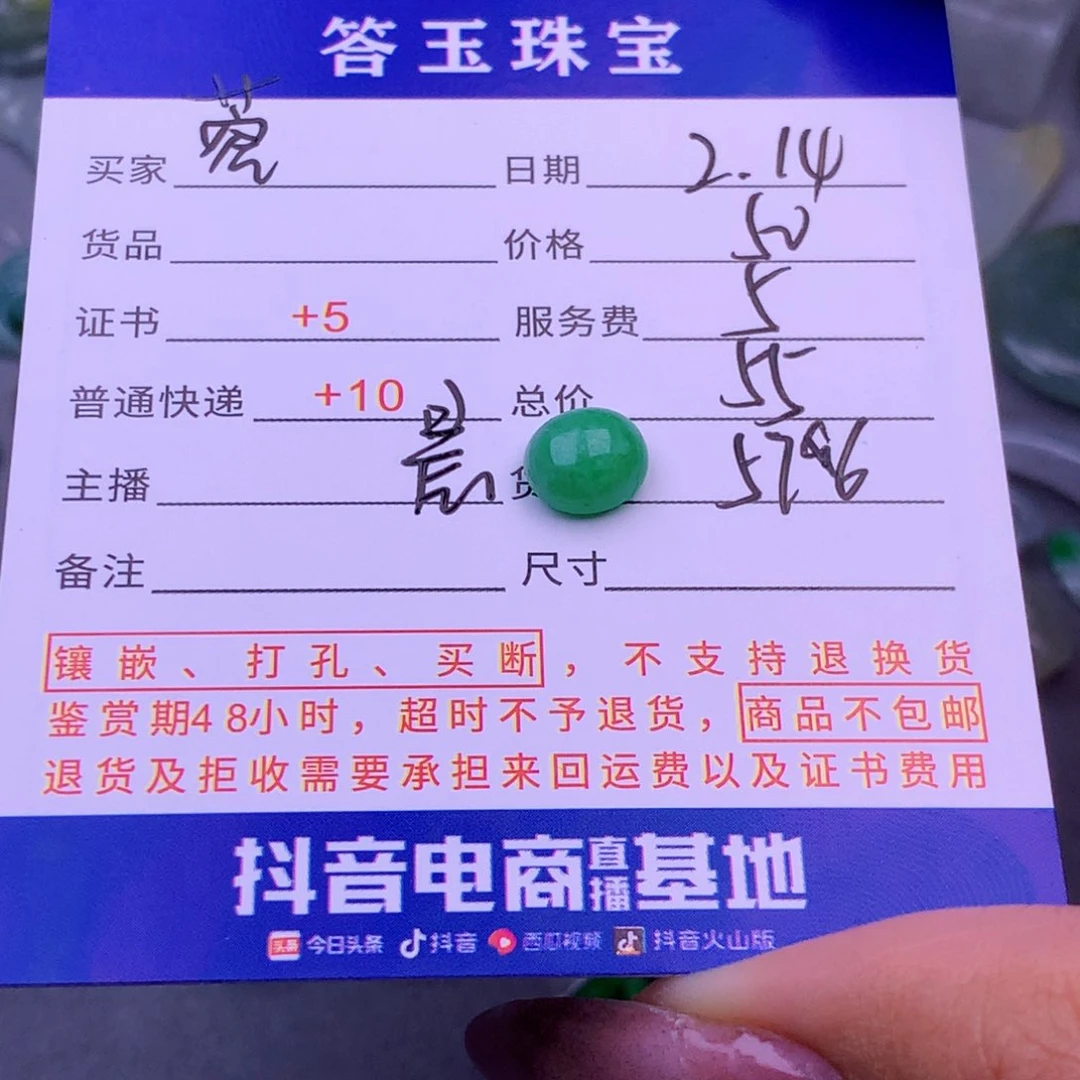 答玉珠宝
买家 日期 2.14
货品 价格 50
证书 +5 服务费 5
普通快递 +10 总价 55
主播 货
备注 尺寸
镶嵌、打孔、买断，不支持退换货
鉴赏期48小时，超时不予退货，商品不包邮
退货及拒收需要承担来回运费以及证书费用
抖音电商直播基地
头条 今日头条 抖音 西瓜视频 抖音火山版